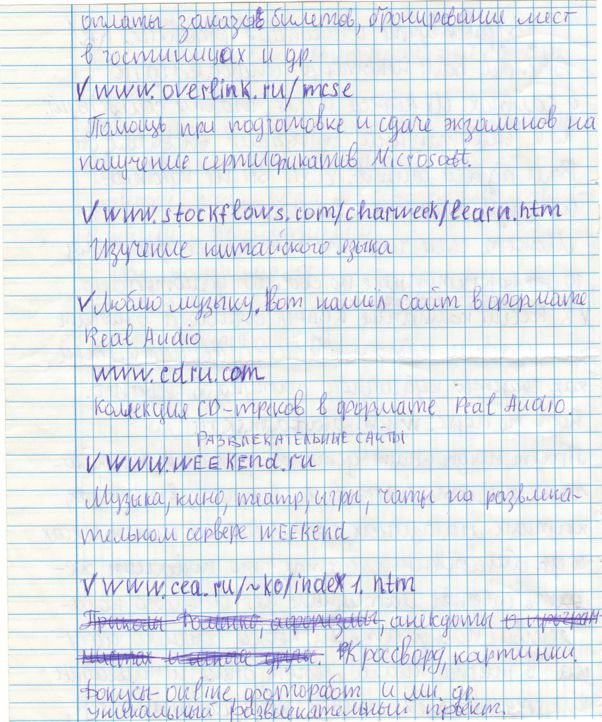 оплаты заказов билетов, бронирования мест
в гостиницах и др.
√ www.overlink.ru/mcse
Помощь при подготовке и сдаче экзаменов на
получение сертификатов Microsoft.
√ www.stockflows.com/charweek/learn.htm
Изучение китайского языка
√ Люблю музыку. Вот нашёл сайт в формате
Real Audio
www.cdru.com
Коллекция CD-треков в формате Real Audio.
РАЗВЛЕКАТЕЛЬНЫЕ САЙТЫ
√ WWW.WEEKEnd.ru
Музыка, кино, театр, игры, чаты на развлека-
тельном сервере WEEKEnd
√ www.cea.ru/~ko/index1.htm
Приколы, афоризмы, анекдоты о програм
мистах и. Кроссворд, картинки.
Фокусы-online, фоторабот и мн. др.
уникальный развлекательный проект.